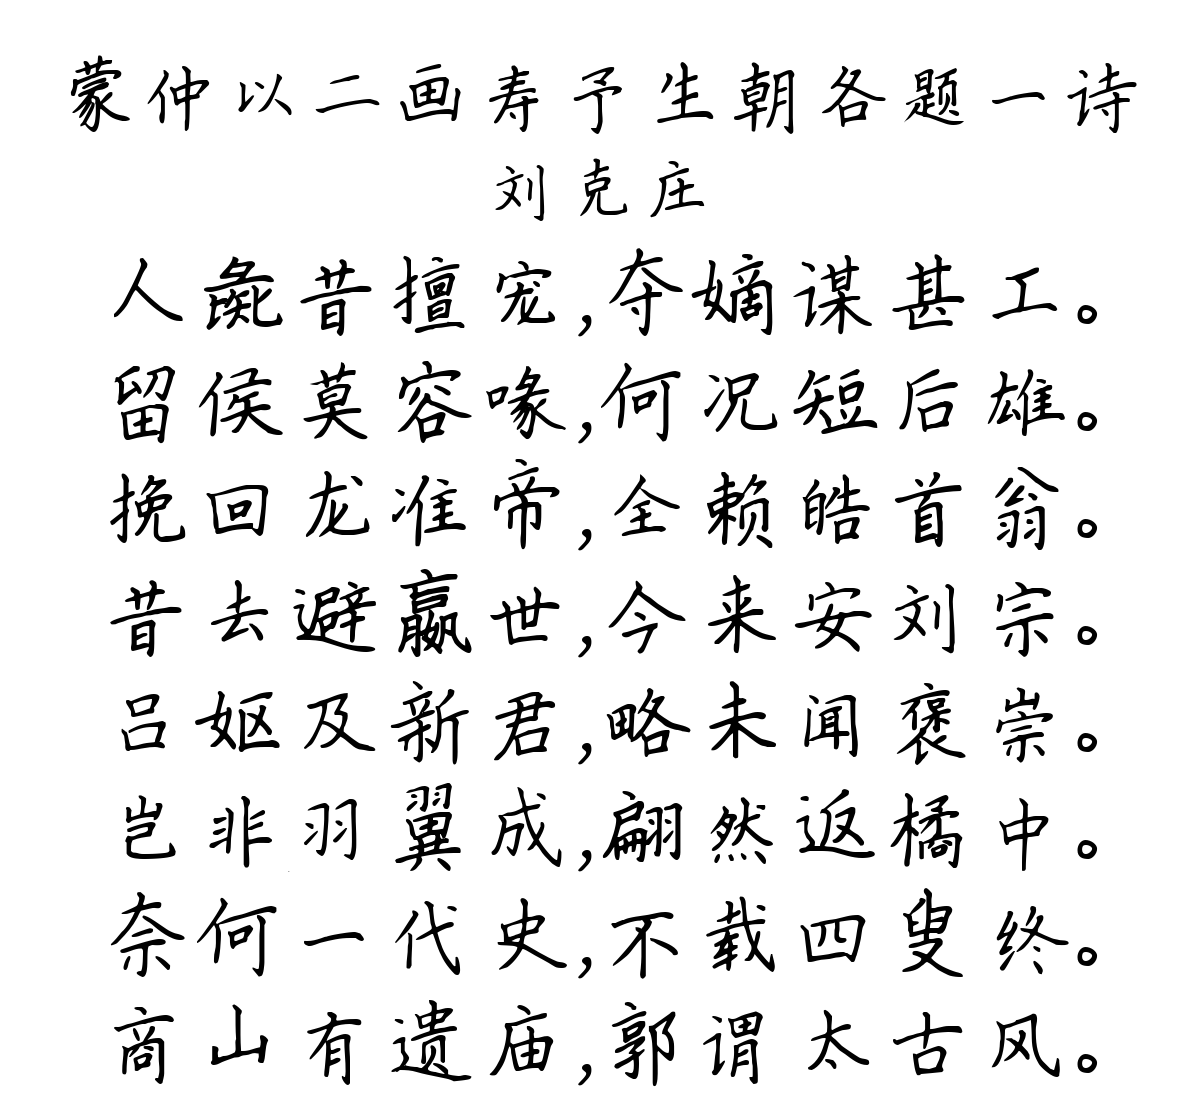 蒙仲以二画寿予生朝各题一诗
刘克庄
人彘昔擅宠,夺嫡谋甚工。
留侯莫容喙,何况短后雄。
挽回龙准帝,全赖皓首翁。
昔去避嬴世,今来安刘宗。
吕妪及新君,略未闻褒崇。
岂非羽翼成,翩然返橘中。
奈何一代史,不载四叟终。
商山有遗庙,郭谓太古风。